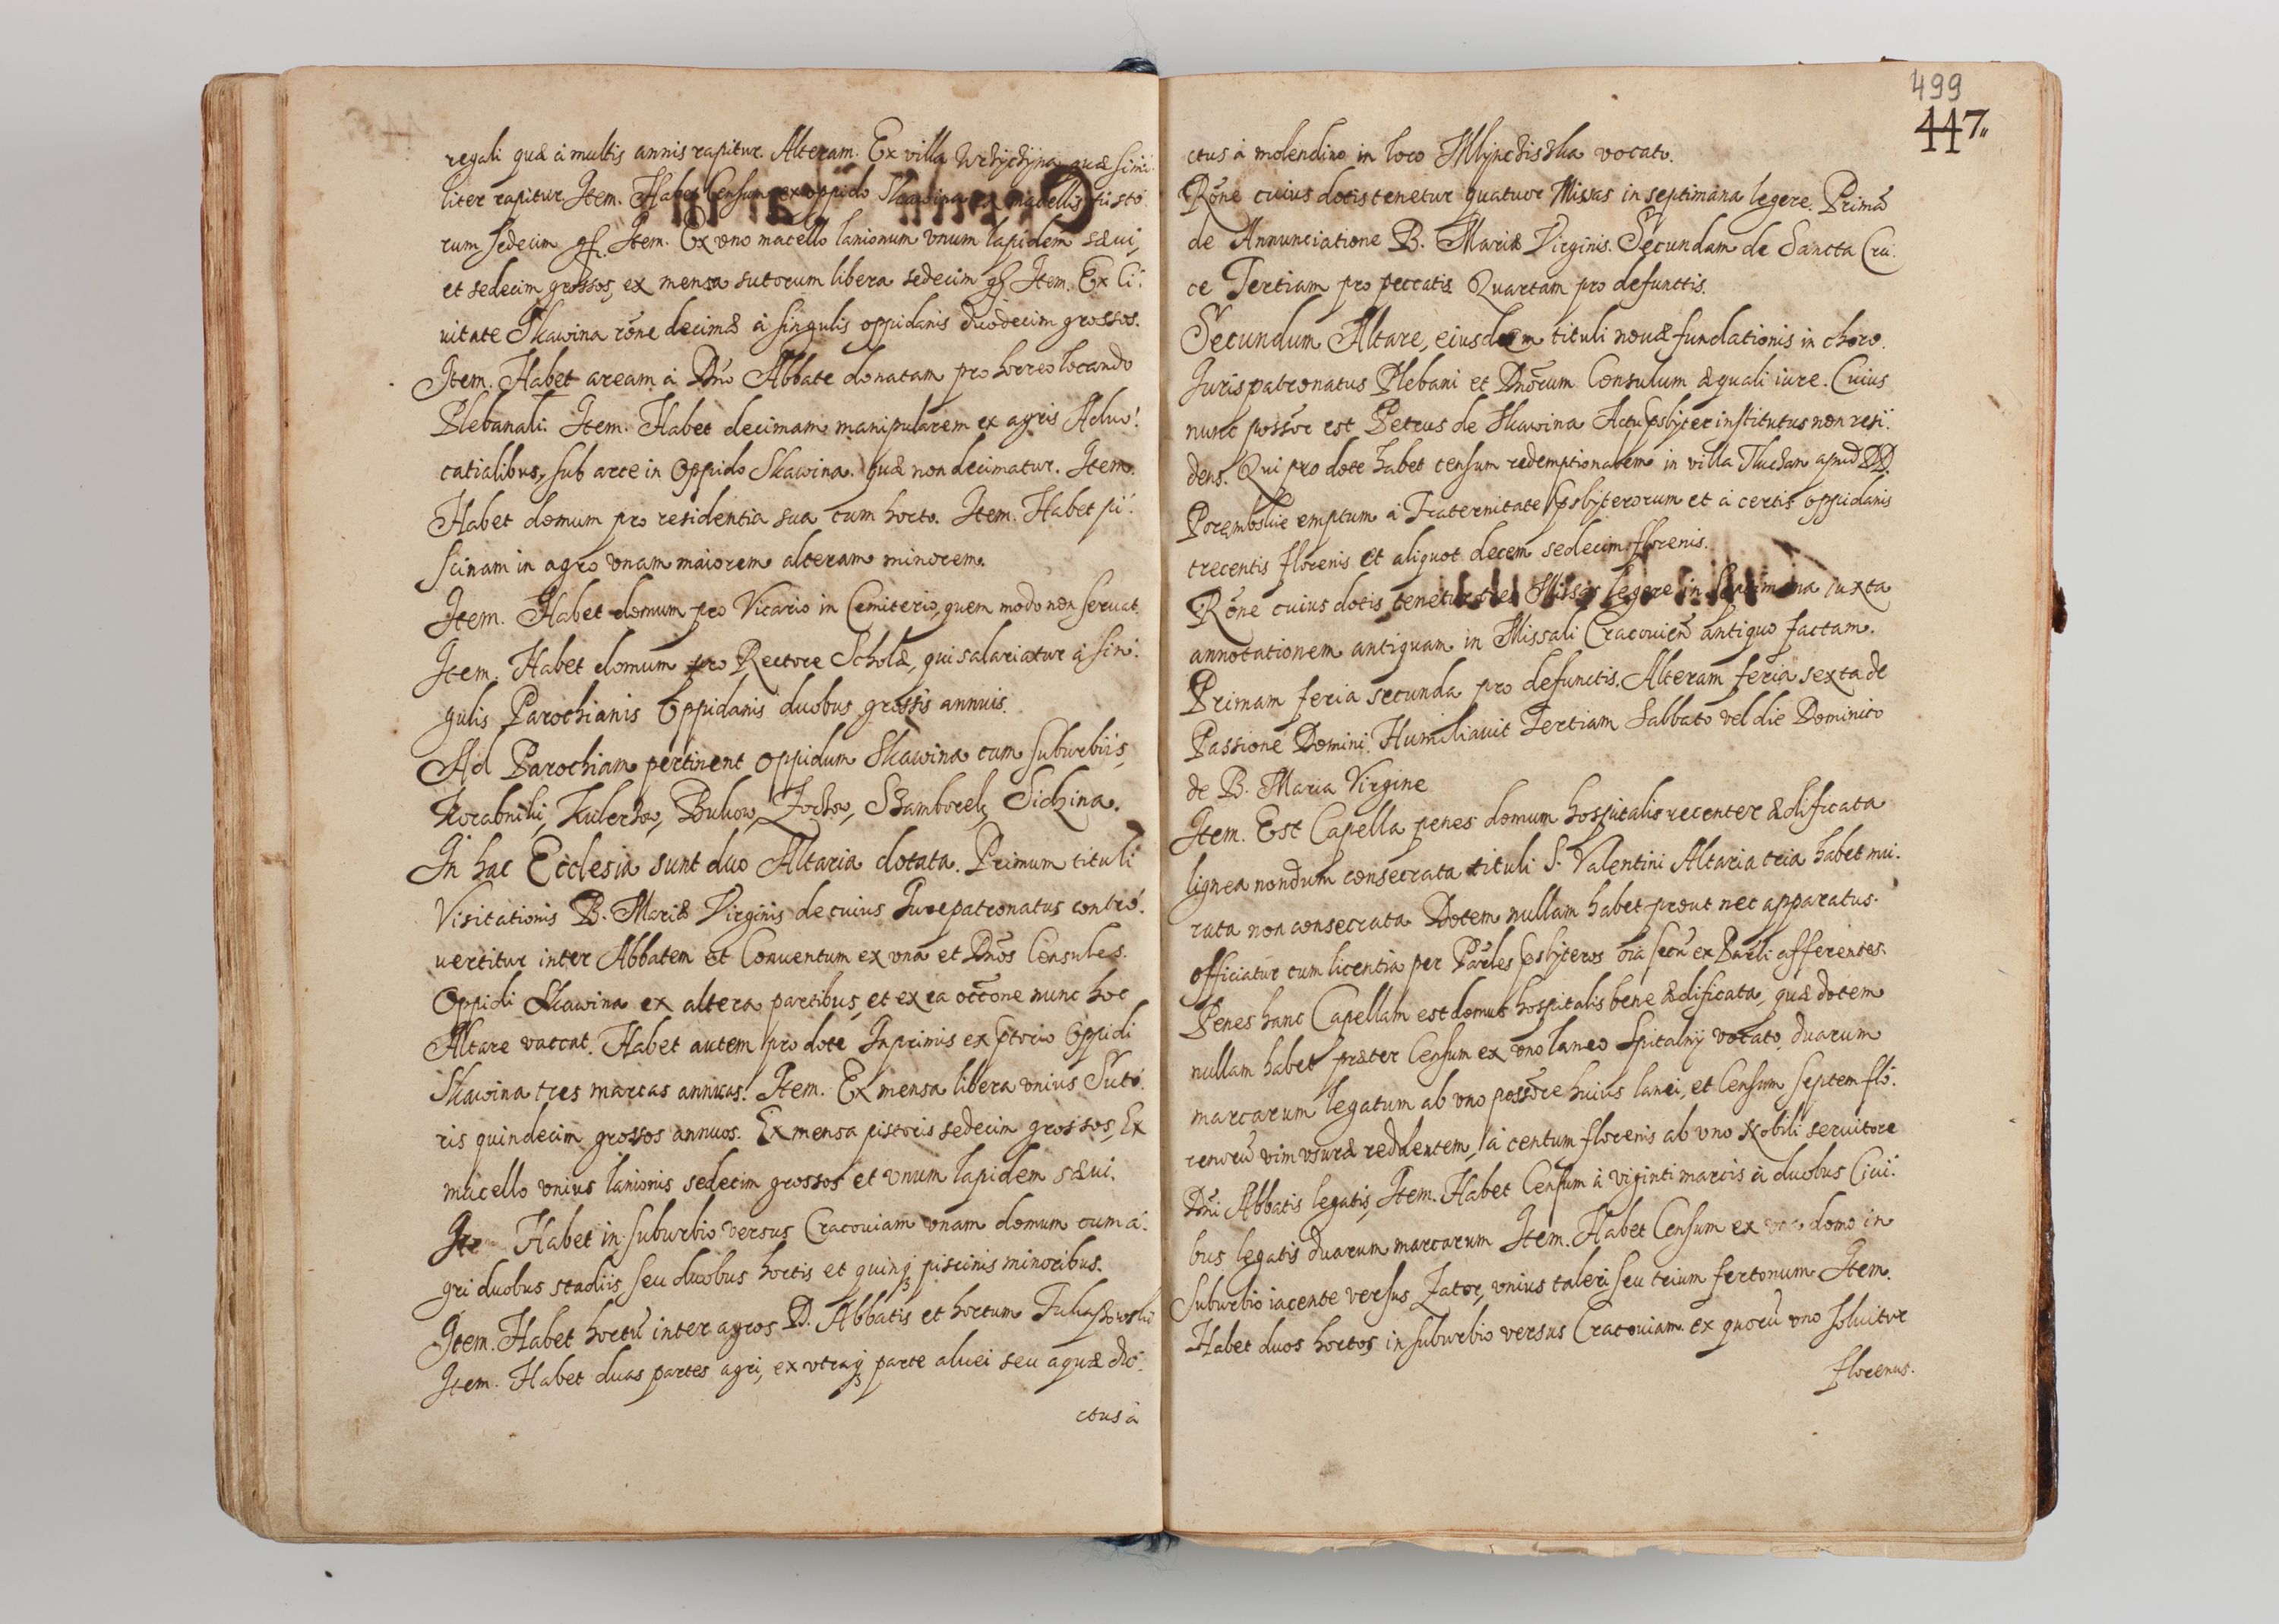 regali quæ á multis annis rapitur. Alteram. Ex villa quæ simi:
liter rapitur Item. Habet Censum ex oppido Skawina ex macellis pisto:
rum sedecim gl. Item. Ex vno macello lanionum vnum lapidem sæui,
et sedecim grossos, ex mensa sutorum libera sedecim gl Item. Ex Ci:
uitate Skawina rõne decimæ á singulis oppidanis duodecim grossos.
Item. Habet aream á Dño Abbate donatam pro horreo locando
Plebanali. Item. Habet decimam manipularem ex agris Aduo:
catialibus, sub arce in Oppido Skawina. quæ non decimatur. Item.
Habet domum pro residentia sua cum horto. Item. Habet pi:
scinam in agro vnam maiorem alteram minorem.
Item. Habet domum pro Vicario in Cemiterio, quem modo non seruat.
Item. Habet domum pro Rectore Scholæ, qui salariatur á sin:
gulis Parochianis Oppidanis duobus grossis annuis.
Ad Parochiam pertinent oppidum Skawina cum suburbiis,
Korabniki, Kulerzow, Bukow, Zorzow, Samborek, Sidzina.
In hac Ecclesia sunt duo Altaria dotata. Primum tituli
Visitationis B. Mariæ Virginis de cuius Iurepatronatus contro:
uertitur inter Abbatem et Conuentum ex vna et Dños Consules.
Oppidi Skawina ex altera partibus, et ex ea occõne nunc hoc
Altare vaccat. Habet autem pro dote Inprimis ex ptorio Oppidi
Skawina tres marcas annuas. Item. Ex mensa libera vnius Suto:
ris quindecim grossos annuos. Ex mensa pistoris sedecim grossos, Ex
macello vnius lanionis sedecim grossos et vnum lapidem sæui.
Item Habet in suburbio versus Cracouiam vnam domum cum a:
gri duobus stadiis, seu duobus hortis et quinq piscinis minoribus.
Item. Habet hortũ inter agros D. Abbatis et hortum
Item. Habet duas partes agri, ex vtraq parte aluei seu aquæ du:
ctus á
499
447
ctus á molendino in loco vocato.
Rõne cuius dotis tenetur quatuor Missas in septimana legere. Primã
de Annunciatione B. Mariæ Virginis. Secundam de Sancta Cru:
ce Tertiam pro peccatis Quartam pro defunctis.
Secundum Altare, eiusdem tituli nouæ fundationis in choro.
Iurispatronatus Plebani et Dnõrum Consulum æquali iure. Cuius
nunc possõr est Petrus de Skawina Actu Psbyter institutus non resi:
dens. Qui pro dote habet censum redemptionalem in villa Tluchan apud DD.
Porembskie emptum á Fraternitate Psbyterorum et á certis oppidanis
trecentis florenis et aliquot decem sedecim florenis.
Rõne cuius dotis tenetur tres Missas legere in Septimana iuxta
annotationem antiquam in Missali Cracouieñ antiquo factam.
Primam feria secunda pro defunctis. Alteram feria sexta de
Passione Domini. Humiliauit Tertiam Sabbato vel die Dominico
de B. Maria Virgine
Item. Est Capella penes domum hospitalis recenter ædificata
lignea nondum consecrata tituli S. Valentini Altaria tria habet mu:
rata non consecrata Dotem nullam habet prout nec apparatus.
Officiatur cum licentia per Parles Psbyteros oĩa secũ ex Parli afferentes.
Penes hanc Capellam est domus hospitalis bene ædificata, quæ dotem
nullam habet præter Censum ex vno laneo Spitalny vocato, duarum
marcarum legatum ab vno possõre huius lanei, et Censum septem flo:
renorũ vim vsuræ redolentem, á centum florenis ab vno Nobili seruitore
Dñi Abbatis legatis, Item. Habet Censum á viginti marcis á duobus Ciui:
bus legatis duarum marcarum Item. Habet Censum ex vna domo in
Suburbio iacente versus Zator, vnius taleri seu trium fertonum Item.
Habet duos hortos in suburbio versus Cracouiam ex quorũ vno soluitur
florenus.